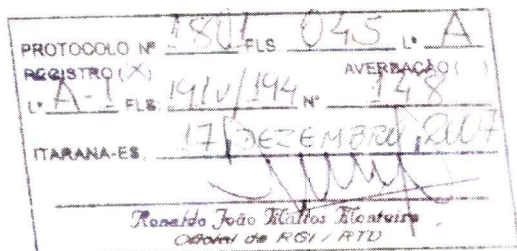 PROTOCOLO Nº 1801 FLS 045 Lº A
REGISTRO (X) AVERBAÇÃO ( )
Lº A-1 FLS 191V/194 Nº 148
ITARANA-ES, 17, DEZEMBRO, 2007
Ronaldo João Mattos Monteiro
Oficial de RGI / RTD